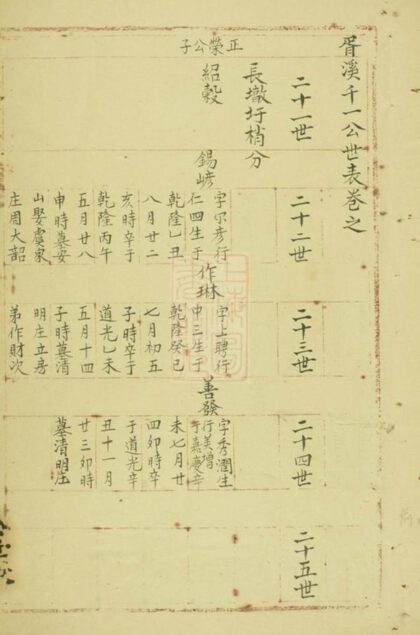 胥溪千一公世表卷之
二十一世
二十二世
二十三世
二十四世
二十五世
長墩圩梢分
正榮公子
紹穀
錫嵃
字尔彥行
仁四生于
乾隆乙丑
八月廿二
亥時辛于
乾隆丙午
五月廿八
申時墓安
山娶虞家
庄周大韶
作琳
字上聘行
申三生于
乾隆癸巳
七月初五
子時辛于
道光乙未
五月十四
子時墓清
明庄立房
弟作財次
善發
字秀潤生
行美增
于嘉慶辛
未七月廿
四卯時卒
于道光辛
丑十一月
廿三卯時
墓清明庄